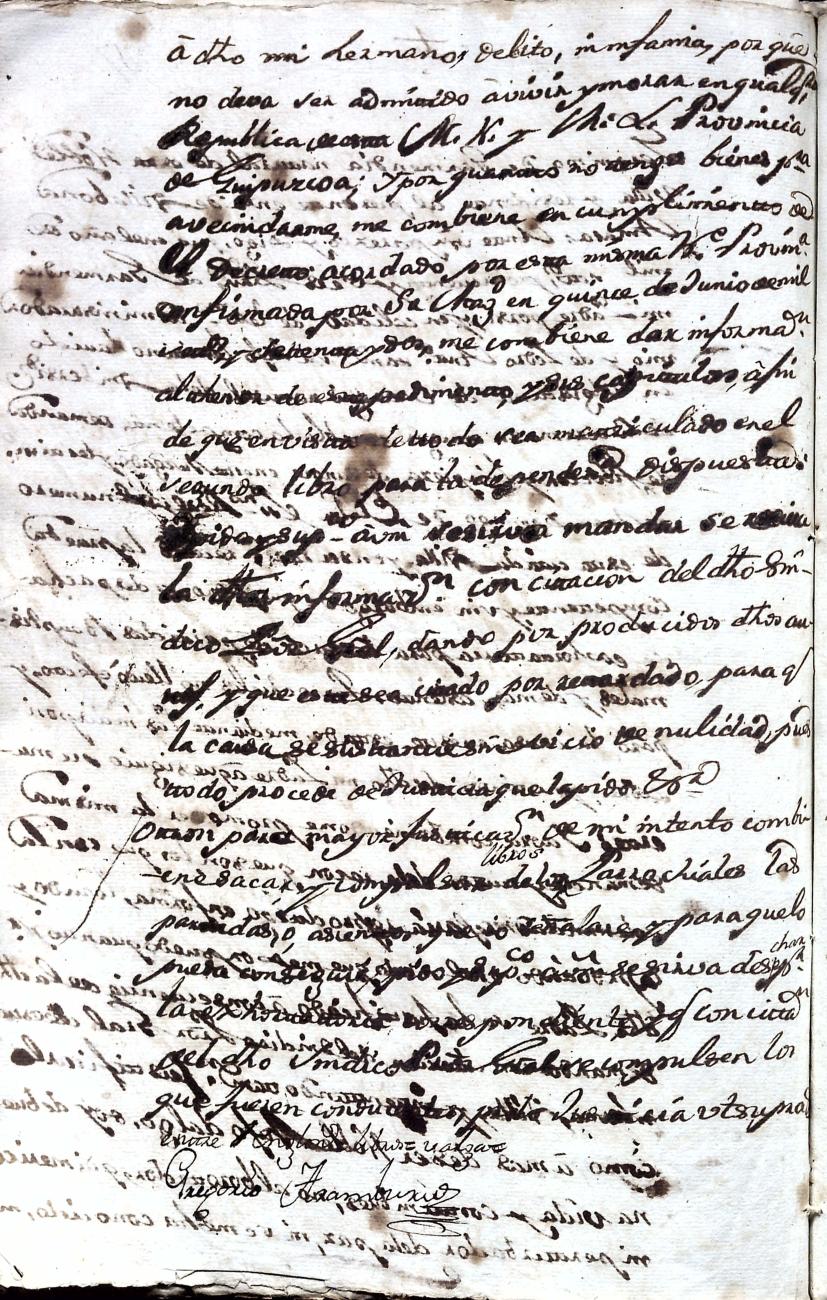 â dho mi hermano, delito, ni infamia, por que
no deva ser admitido â vivir y morar en qualq.r
Republica, de esta M. N. y M. L. Provincia
de Guipuzcoa; y por quanto no tengo bienes p.a
avecindarme, me combiene en cumplimiento de
el Decreto acordado por esta misma N.e Provin.a
confirmada por Su Mag.d en quince de Junio de mil
y settenta y dos, me combiene dar informaz.n
al thenor de este pedimento, y sus capitulos, â fin
de que en vista de todo sea matriculado en el
segundo libro para la dispuesta:
Pido y sup.co â vm se sirva mandar se reciva
la dha informaz.n con citacion del dho Sin-
dico Gral, dando por producidos dhos au
tos, y que esta sea citado por retardado, para q
la causa se sustancie sin vicio de nulidad, pues
todo procede de Justicia que la pido &.a
Otrosi para mayor justificaz.n de mi intento combi-
ene sacar, y compulsar de los libros Parrochiales las
partidas, ô asientos, que yo señalare, y para que lo
pueda conseguir, pido y sup.co â vm se sirva despachar
la exhortatoria correspondiente y q con citta.n
del dho Sindico Pror Gral se compulsen los
que fuesen conducentes, pido Justicia ut supra
entre
Gregorio Aramburu